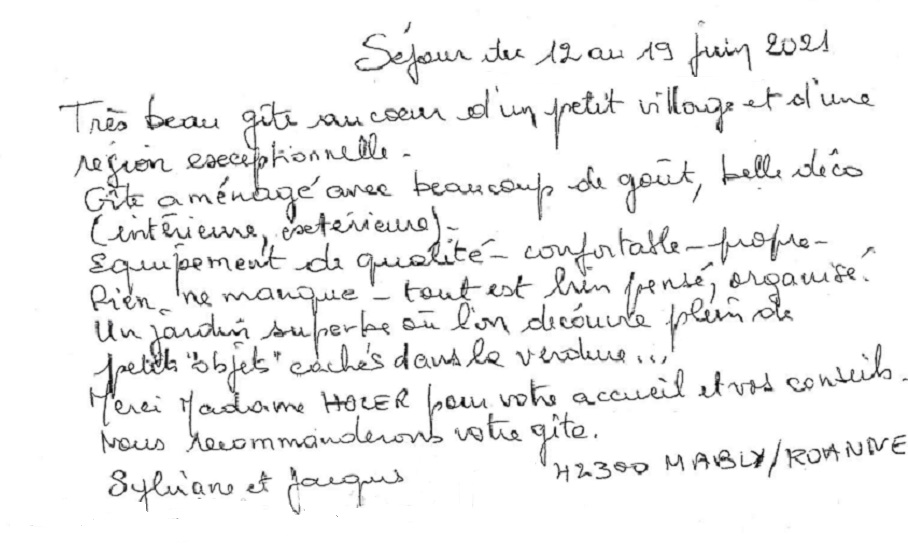 Séjour du 12 au 19 juin 2021
Très beau gîte au coeur d'un petit village et d'une
région exceptionnelle.
Gîte aménagé avec beaucoup de goût, belle déco
(intérieure, extérieure).
Equipement de qualité - confortable - propre -
Rien ne manque - tout est bien pensé, organisé.
Un jardin superbe où l'on découvre plein de
petits "objets" cachés dans la verdure...
Merci Madame pour votre accueil et vos conseils.
Nous recommanderons votre gîte.
Sylviane et Jacques
42300 MABLY/ROANNE